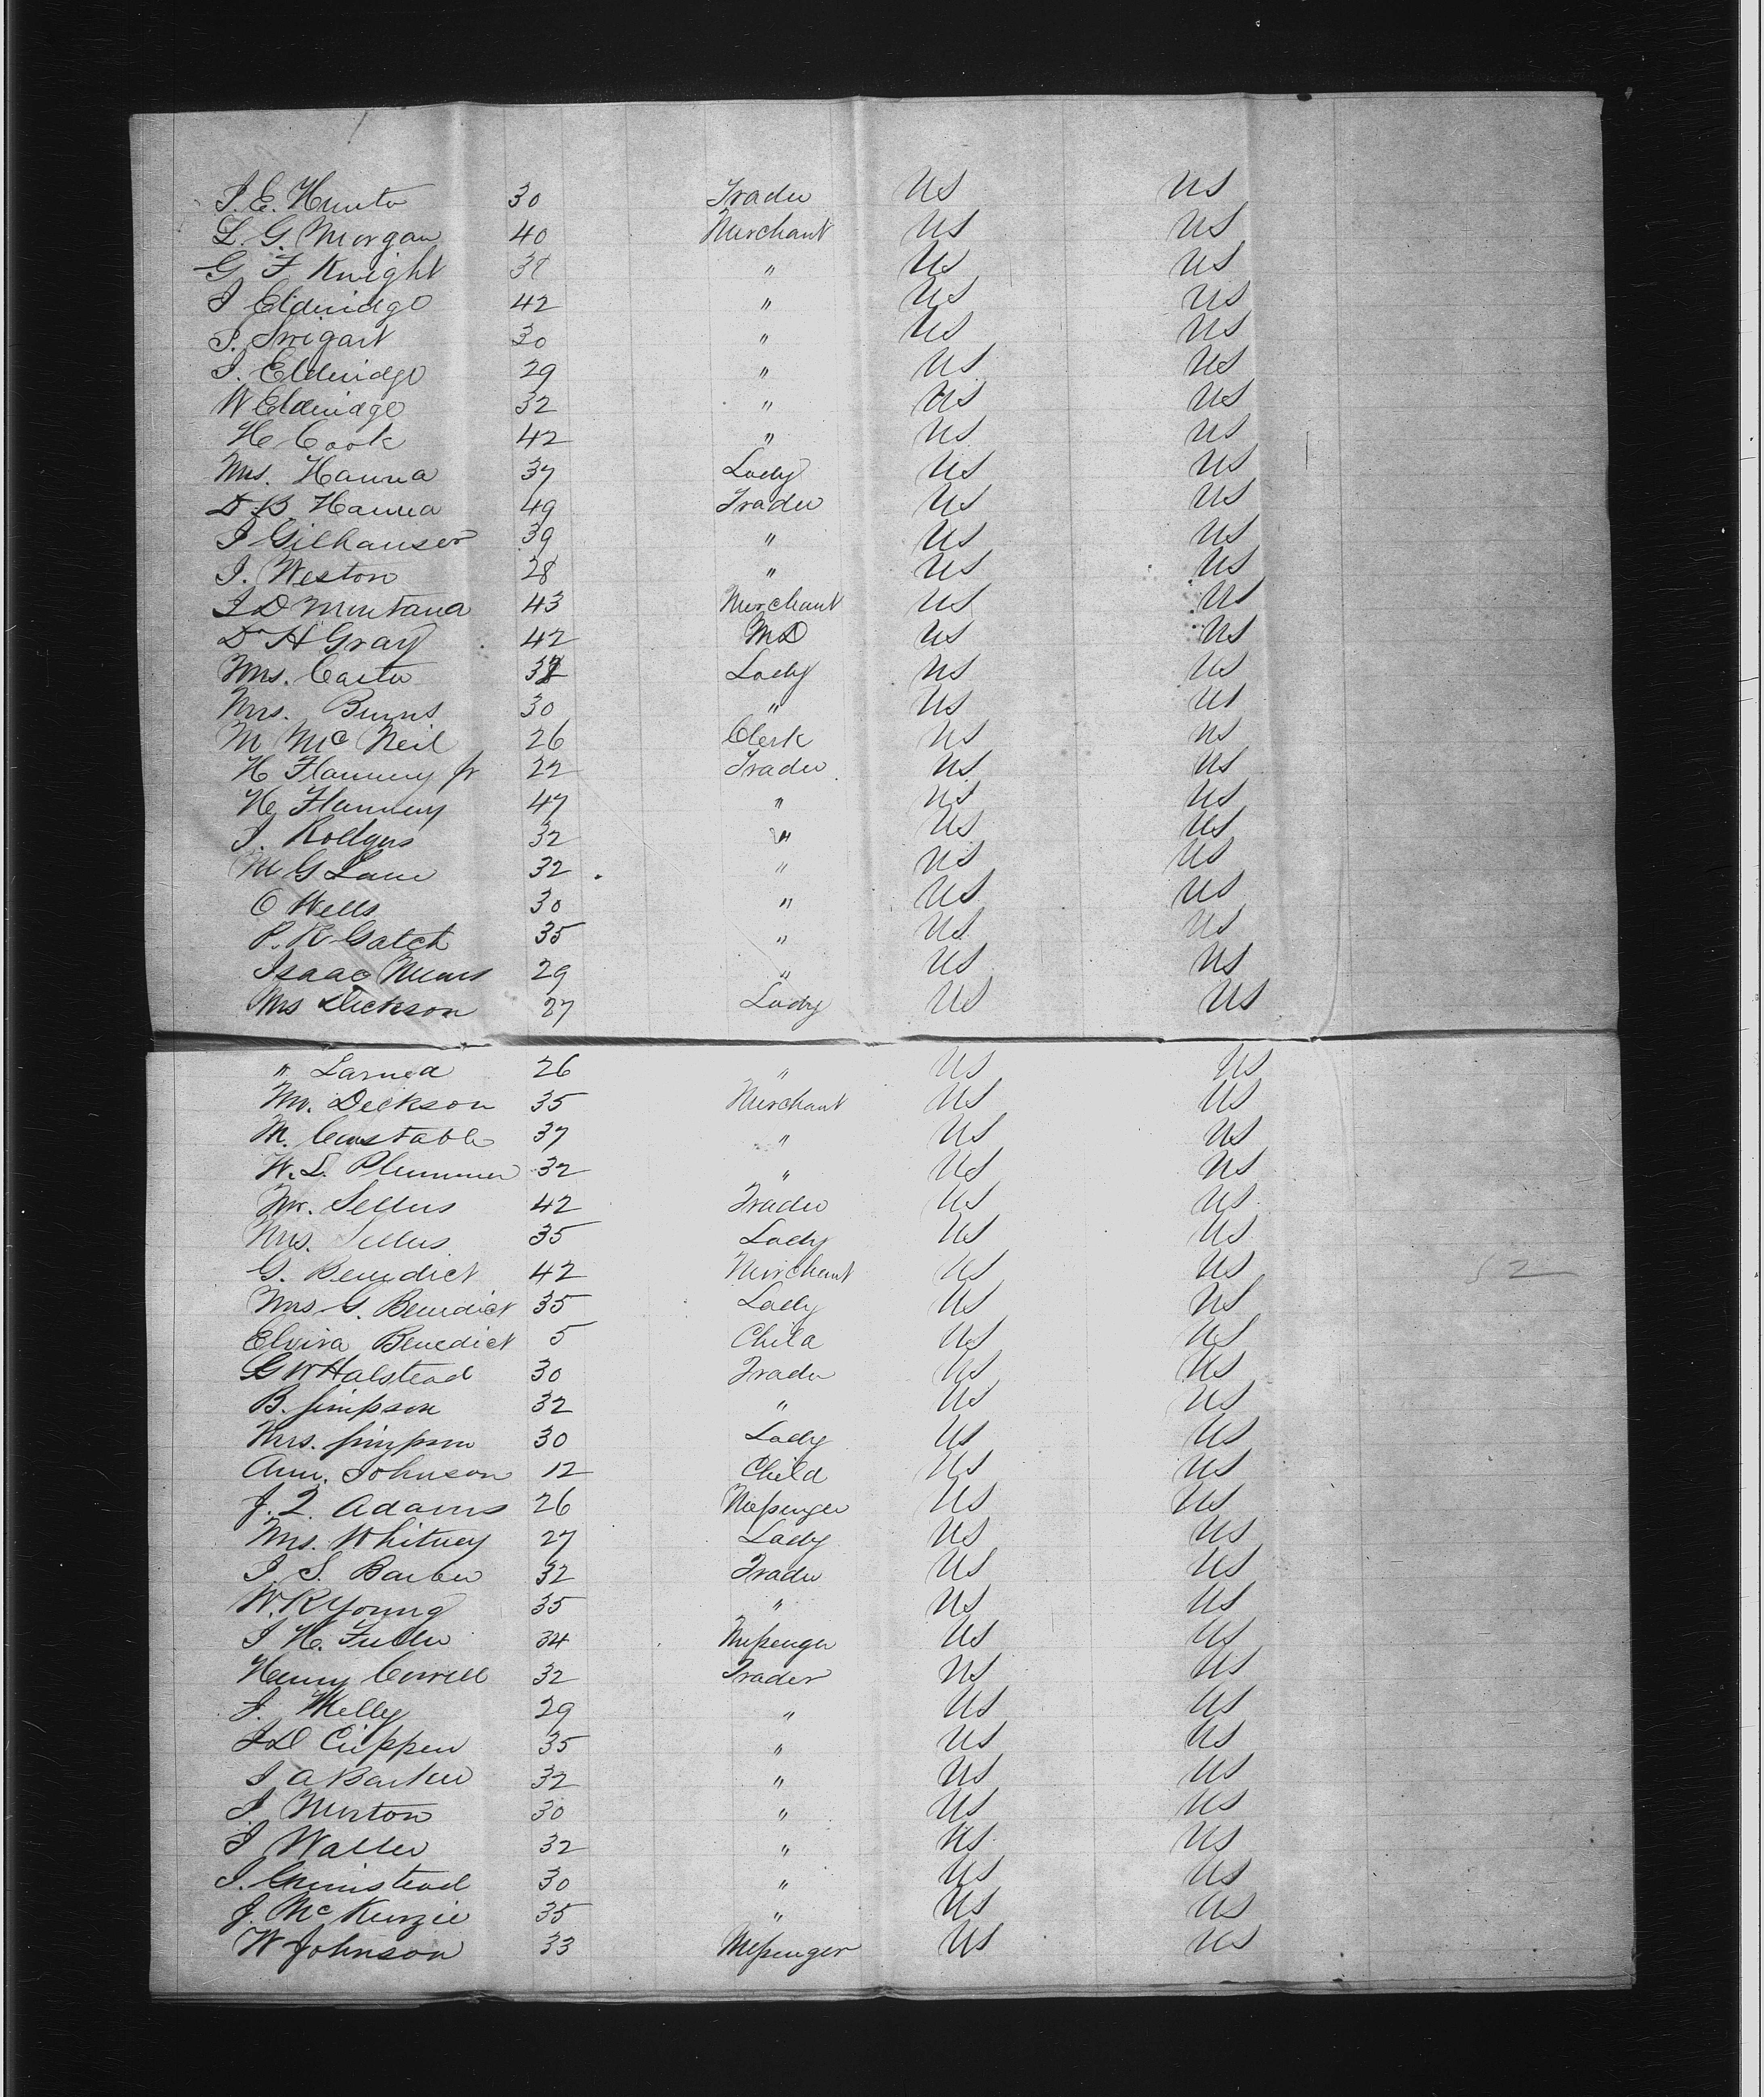 J. E. Hunter 30 Trader US US
L. G. Morgan 40 Merchant US US
G F Knight 38 " US US
J Eldridge 42 " US US
J. Swigart 30 " US US
J. Eldridge 29 " US US
W Eldridge 32 " US US
H Cook 42 " US US
Mrs. Hanna 37 Lady US US
D. B Hanna 49 Trader US US
J Gilhauser 39 " US US
J. Weston 28 " US US
J D Montana 43 Merchant US US
Dr H Gray 42 MD US US
Mrs. Carter Lady US US
Mrs. Burns 30 " US US
M McNeil 26 Clerk US US
H Flannery Jr 22 Trader US US
H Flannery 47 " US US
J. Rodgers 32 " US US
M G Lane 32 " US US
O Wells 30 " US US
P. K Gatch 35 " US US
Isaac Mears 29 " US US
Mrs Dickson 27 Lady US US
" Larned 26 " US US
Mr. Dickson 35 Merchant US US
M. Constable 37 " US US
W. L. Plummer 32 " US US
Mr. Sellers 42 Trader US US
Mrs. Sellers 35 Lady US US
G. Benedict 42 Merchant US US 52
Mrs G. Benedict 35 Lady US US
Elvira Benedict 5 Child US US
G W Halstead 30 Trader US US
B. Simpson 32 " US US
Mrs. Simpson 30 Lady US US
Ann. Johnson 12 Child US US
J. Q. Adams 26 Messenger US US
Mrs. Whitney 27 Lady US US
J. S. Barber 32 Trader US US
W. R Young 35 " US US
J H. Fuller 34 Messenger US US
Henry Correll 32 Trader US US
J. Kelly 29 " US US
J D Crippen 35 " US US
J A Barker 32 " US US
J. Merton 30 " US US
J Waller 32 " US US
J. Grimstead 30 " US US
J. McKenzie 35 " US US
W Johnson 33 Messenger US US